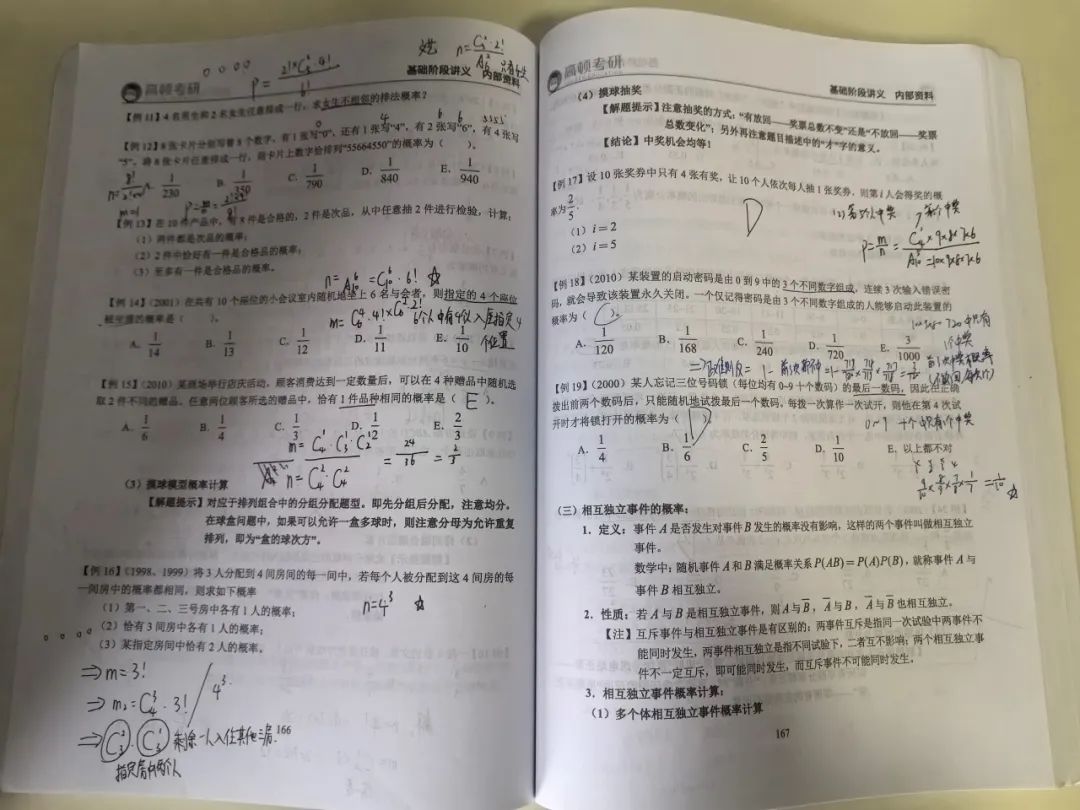 高顿考研
基础阶段讲义 内部资料
【例 11】4 名男生和 2 名女生任意排成一行，求女生不相邻的排法概率？
【例 12】8 张卡片分别写着 8 个数字，有 1 张写“0”，还有 1 张写“4”，有 2 张写“6”，有 4 张写
“5”，将 8 张卡片任意排成一行，则卡片上数字恰排列“55664550”的概率为（ ）。
A. 1/230 B. 1/350 C. 1/790 D. 1/840 E. 1/940
【例 13】在 10 件产品中，有 8 件是合格的，2 件是次品，从中任意抽 2 件进行检验，计算：
（1）两件都是次品的概率；
（2）2 件中恰好有一件是合格品的概率；
（3）至多有一件是合格品的概率。
n=A₁₀⁶=C₁₀⁶·6!
【例 14】（2001）在共有 10 个座位的小会议室内随机地坐上 6 名与会者，则指定的 4 个座位
被坐满的概率是（ ）。
A. 1/14 B. 1/13 C. 1/12 D. 1/11 E. 1/10
【例 15】（2010）某商场举行店庆活动，顾客消费达到一定数量后，可以在 4 种赠品中随机选
取 2 件不同的赠品。任意两位顾客所选的赠品中，恰有 1 件品种相同的概率是（ E ）。
A. 1/6 B. 1/4 C. 1/3 D. 1/2 E. 2/3
m=C₄¹·C₃¹·C₂¹
n=C₄²·C₄²
=24/36=2/3
（3）摸球模型概率计算
【解题提示】对应于排列组合中的分组分配题型。即先分组后分配，注意均分。
在球盒问题中，如果可以允许一盒多球时，则注意分母为允许重复
排列，即为“盒的球次方”。
【例 16】（1998、1999）将 3 人分配到 4 间房间的每一间中，若每个人被分配到这 4 间房的每
一间房中的概率都相同，则求如下概率
n=4³
（1）第一、二、三号房中各有 1 人的概率；
（2）恰有 3 间房中各有 1 人的概率；
（3）某指定房间中恰有 2 人的概率。
⇒m=3!
⇒m₂=C₄³·3!
4³
剩余一人入住其他三房
指定房内两个人
166
高顿考研
基础阶段讲义 内部资料
（4）摸球抽奖
【解题提示】注意抽奖的方式：“有放回——奖票总数不变”还是“不放回——奖票
总数变化”；另外再注意题目描述中的“才”字的意义。
【结论】中奖机会均等！
【例 17】设 10 张奖券中只有 4 张有奖，让 10 个人依次每人抽 1 张奖券，则第 i 人会得奖的概
率为 2/5.
（1）i=2
（2）i=5
【例 18】（2010）某装置的启动密码是由 0 到 9 中的 3 个不同数字组成，连续 3 次输入错误密
码，就会导致该装置永久关闭。一个仅记得密码是由 3 个不同数字组成的人能够启动此装置的
概率为（ C ）。
A. 1/120 B. 1/168 C. 1/240 D. 1/720 E. 3/1000
【例 19】（2000）某人忘记三位号码锁（每位均有 0~9 十个数码）的最后一数码，因此在正确
拨出前两个数码后，只能随机地试拨最后一个数码。每拨一次算作一次试开，则他在第 4 次试
开时才将锁打开的概率为（ D ）。
A. 1/4 B. 1/6 C. 2/5 D. 1/10 E. 以上都不对
（三）相互独立事件的概率：
1. 定义：事件 A 是否发生对事件 B 发生的概率没有影响，这样的两个事件叫做相互独立
事件。
数学中：随机事件 A 和 B 满足概率关系 P(AB)=P(A)P(B)，就称事件 A 与
事件 B 相互独立。
2. 性质：若 A 与 B 是相互独立事件，则 A 与 B̅，A̅ 与 B，A̅ 与 B̅ 也相互独立。
【注】互斥事件与相互独立事件是有区别的：两事件互斥是指同一次试验中两事件不
能同时发生，两事件相互独立是指不同试验下，二者互不影响；两个相互独立事
件不一定互斥，即可能同时发生，而互斥事件不可能同时发生。
3. 相互独立事件概率计算：
（1）多个体相互独立事件概率计算
167